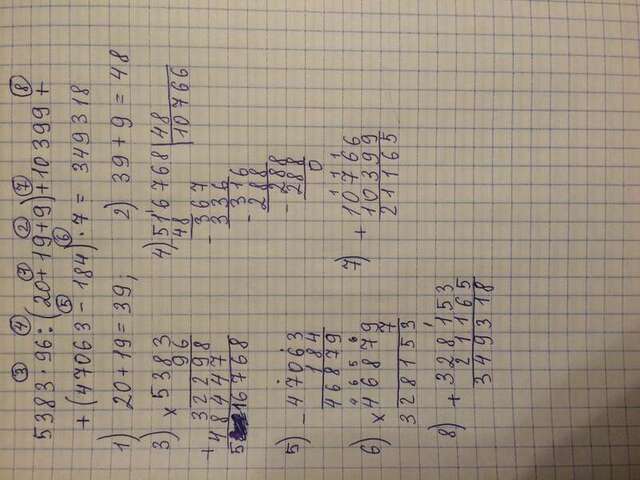 ③ ④ ① ② ⑦ ⑧
5383·96:(20+19+9)+10399+
+(47063-184)·7=349318
⑤ ⑥
1) 20+19=39; 2) 39+9=48
3) ×5383
96
+32298
48447
516768
4) 516768 | 48
48 10766
-367
336
-316
288
-288
288
0
5) -47063
184
46879
6) 4 6 5 6
×46879
7
328153
7) 1 1 1
+10766
10399
21165
8) 1
+328153
21165
349318